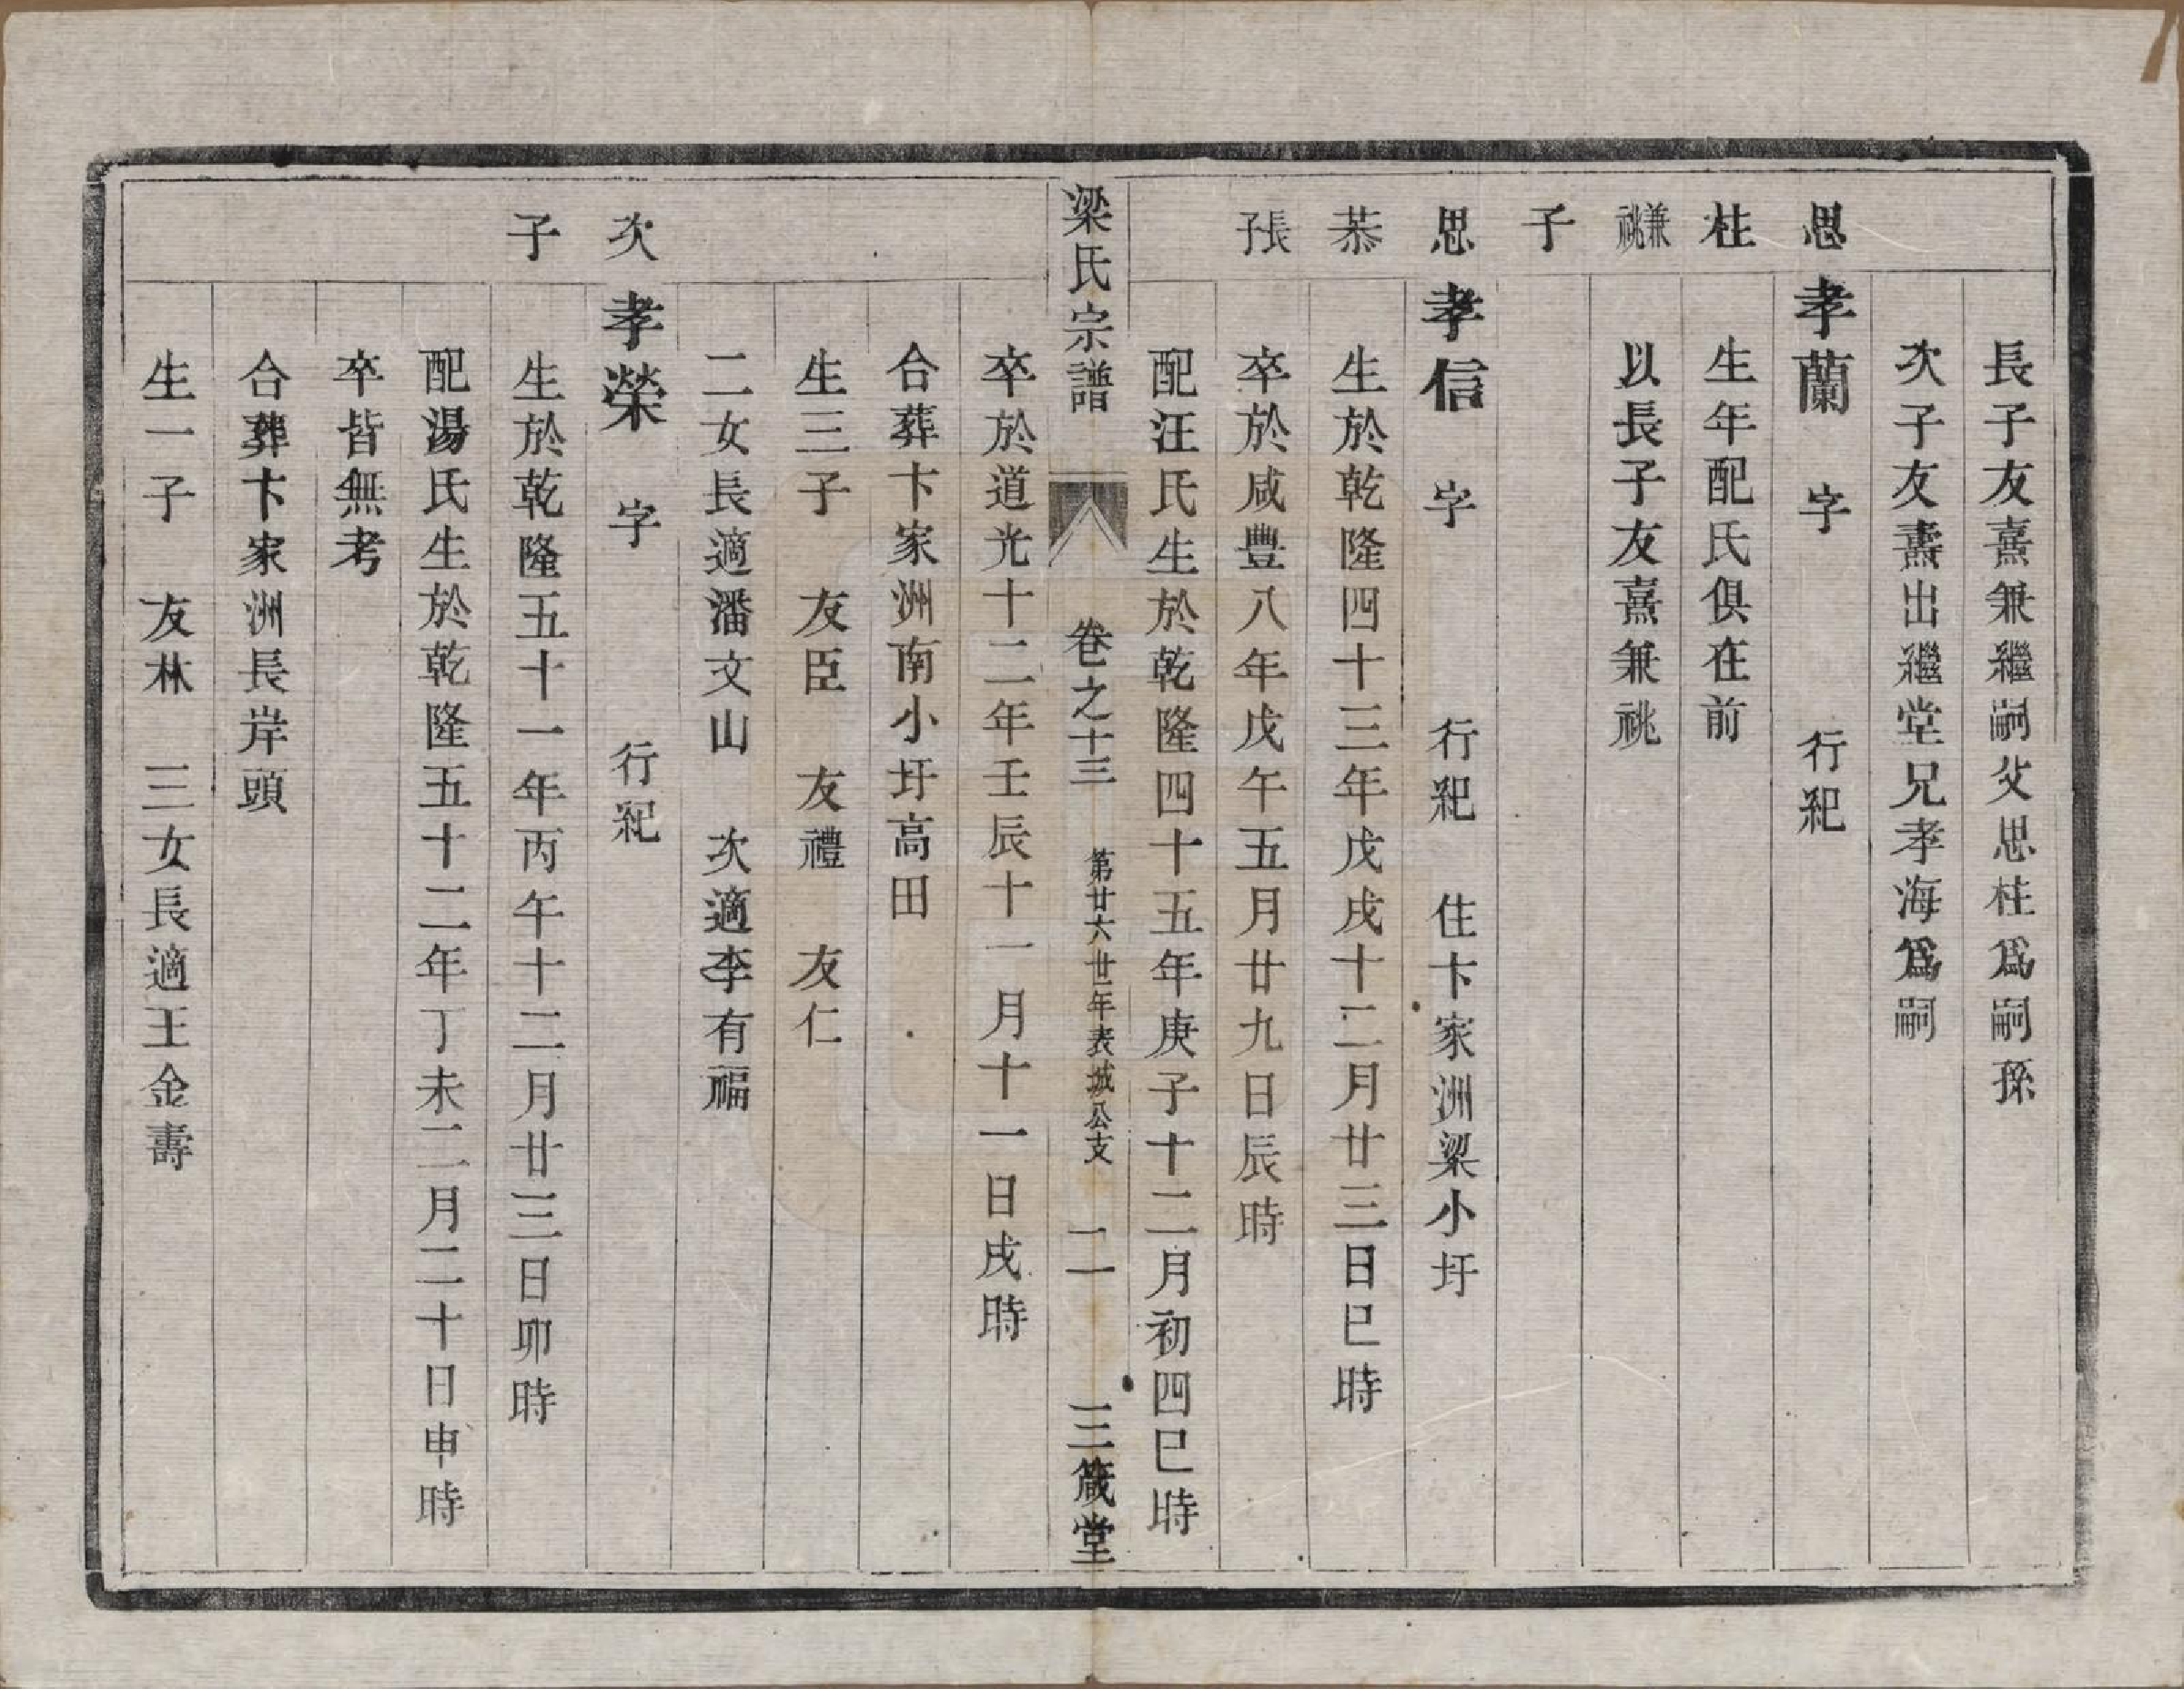 長子友熹兼繼嗣父思桂爲嗣孫
次子友燾出繼堂兄孝海爲嗣
思 孝蘭 字 行紀
桂 生年配氏俱在前
兼祧 以長子友熹兼祧
子
思 孝信 字 行紀 住卞家洲梁小圩
恭 生於乾隆四十三年戊戌十二月廿三日巳時
長子 卒於咸豐八年戊午五月廿九日辰時
配汪氏生於乾隆四十五年庚子十二月初四巳時
梁氏宗譜 卷之十三 第廿六世年表城公支 二一 三箴堂
卒於道光十二年壬辰十一月十一日戌時
合葬卞家洲南小圩高田
生三子 友臣 友禮 友仁
二女長適潘文山 次適李有福
次 孝榮 字 行紀
子 生於乾隆五十一年丙午十二月廿三日卯時
配湯氏生於乾隆五十二年丁未二月二十日申時
卒皆無考
合葬卞家洲長岸頭
生一子 友林 三女長適王金壽